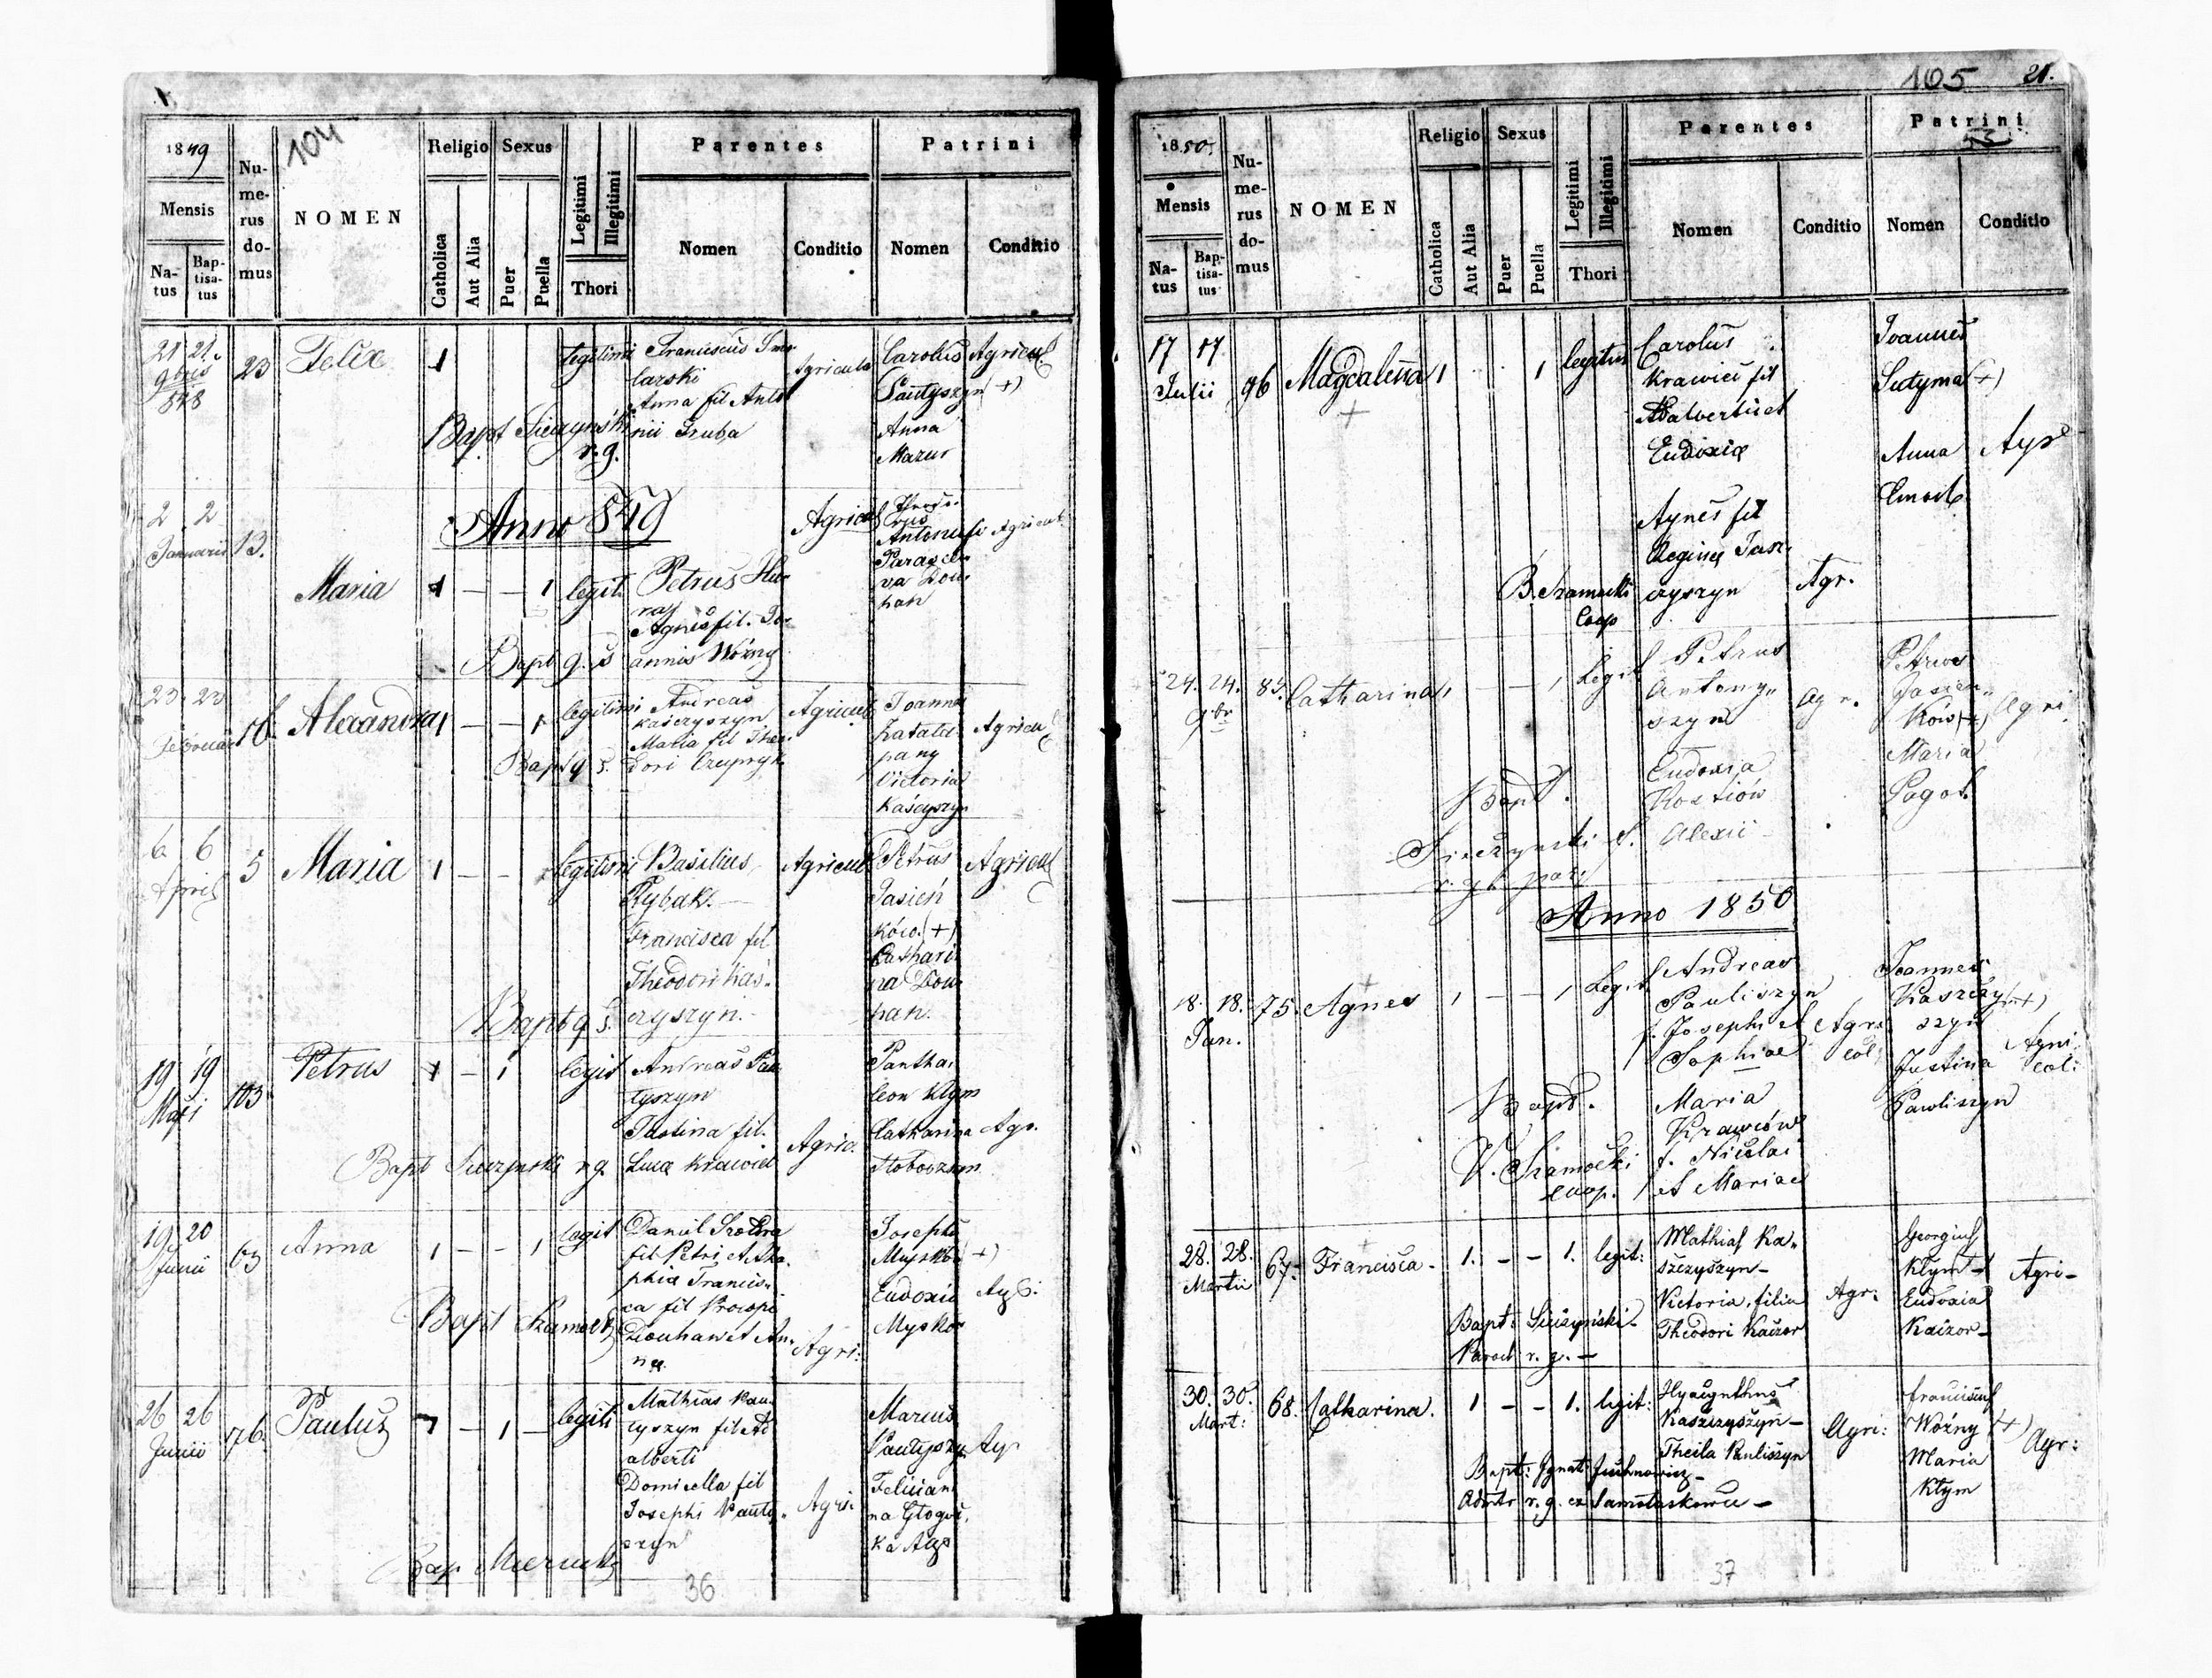 104
1849
Mensis
Na-
tus
Bap-
tisa-
tus
Nu-
me-
rus
do-
mus
NOMEN
Religio
Catholica
Aut Alia
Sexus
Puer
Puella
Legitimi
Illegitimi
Thori
Parentes
Nomen
Conditio
Patrini
Nomen
Conditio
21 21
9bris
848
23
Felix
1
legitimi
Franciscus
larski
Anna fil Anto
nii Gruba
Agricula
Carolus
Pautyszyn (+)
Anna
Mazur
Agricul
Bapt Sieczyński
r. g.
Anno 849
2 2
Januarii
13.
Maria
1 — — 1
legit.
Petrus Hu-
Agnes fil. Jo-
annis Woźny
Agricol
Parasce-
va Dou-
han
Agricul
Bapt q. s
23 23
Februar
Alexandra
1 — — 1
legitimi
Andreas
Kaśczyszyn
Maria fil Theo-
dori
Agricul
Joannes
Victoria
Kaśczyszyn
Agricul
Bapt q s.
6 6
April
5
Maria
1 — —
legitimi
Basilius
Rybak.
Francisca fil
Theodori Kaś-
czyszyn.
Agricul
Petrus
Jasień
ków. (+)
Cathari-
na Dou-
han.
Agricul
Bapt q s.
19 19
Maji
103
Petrus
1 — 1
legit
Andreas Pau-
tyszyn
Justina fil.
Lucæ Krawiec
Agric.
Pantha-
leon Klym
Catharina
Agr.
Bapt Sieczynski r g.
19 20
Junii
63
Anna
1 — — 1
legit
Daniel
fil Petri et
phia Francis-
ca fil Procopi
Douhan et An-
na.
Agri:
Josephus
Mysko (+)
Eudoxia
Mysko
Bapt Szamocki
26 26
Junii
76.
Paulus
1 — 1 —
legiti
Mathias Pau-
tyszyn fil Ad
alberti
Domicella fil
Josephi Pauty-
szyn
Agri.
Marcus
Pautyszyn
Felician-
na
ka Agr
Agr
Bap
36
105
21.
1850.
Mensis
Na-
tus
Bap-
tisa-
tus
Nu-
me-
rus
do-
mus
NOMEN
Religio
Catholica
Aut Alia
Sexus
Puer
Puella
Legitimi
Illegitimi
Thori
Parentes
Nomen
Conditio
Patrini
Nomen
Conditio
17 17
Julii
96
Magdalena
+
1 1
legitim
Carolus
Krawiec fil
Adalberti et
Eudoxiæ
Agnes fil
Reginæ Jasz-
czyszyn
Agr.
Joannes
Sudyma (+)
Anna
Agr
B. Szamocki
Coop
24. 24.
9br
85.
Catharina
1 — — 1
Legit
Petrus
Antony-
szyn
Eudoxia
Kostiów
Alexii
Agr.
Petrus
Jasien-
ków (+)
Maria
Pagot.
Agri
Bapt.
Sieczynski S.
r. gt. par
Anno 1850
18. 18.
Jan.
75.
Agnes
1 — — 1
Legit
Andreas
Pauliszyn
f. Josephi et
Sophiae
Maria
Krawców
f. Nicolai
et Mariae
Agri
col:
Joannes
Kaszczy (+)
szyn
Justina
Pauliszyn
Agri
col:
Bapt.
V. Szamocki
coop.
28. 28.
Martii
67.
Francisca -
1. - - 1.
legit:
Mathias Ka-
szczyszyn -
Victoria, filia
Theodori Kaczor
Agr:
Georgius
Kłym -
Eudoxia
Kaczor -
Agri -
Bapt: Siczyński -
Paroch r. g. -
30. 30.
Mart:
68.
Catharina.
1 - - 1.
legit:
Hyacynthus
Kaszczyszyn -
Thecla Pauliszyn
Agri:
Franciscus
Woźny (+)
Maria
Kłym
Agr:
Bapt: Ignat: Juchnowicz -
Admtr r. g. ex Samołuskowce -
37